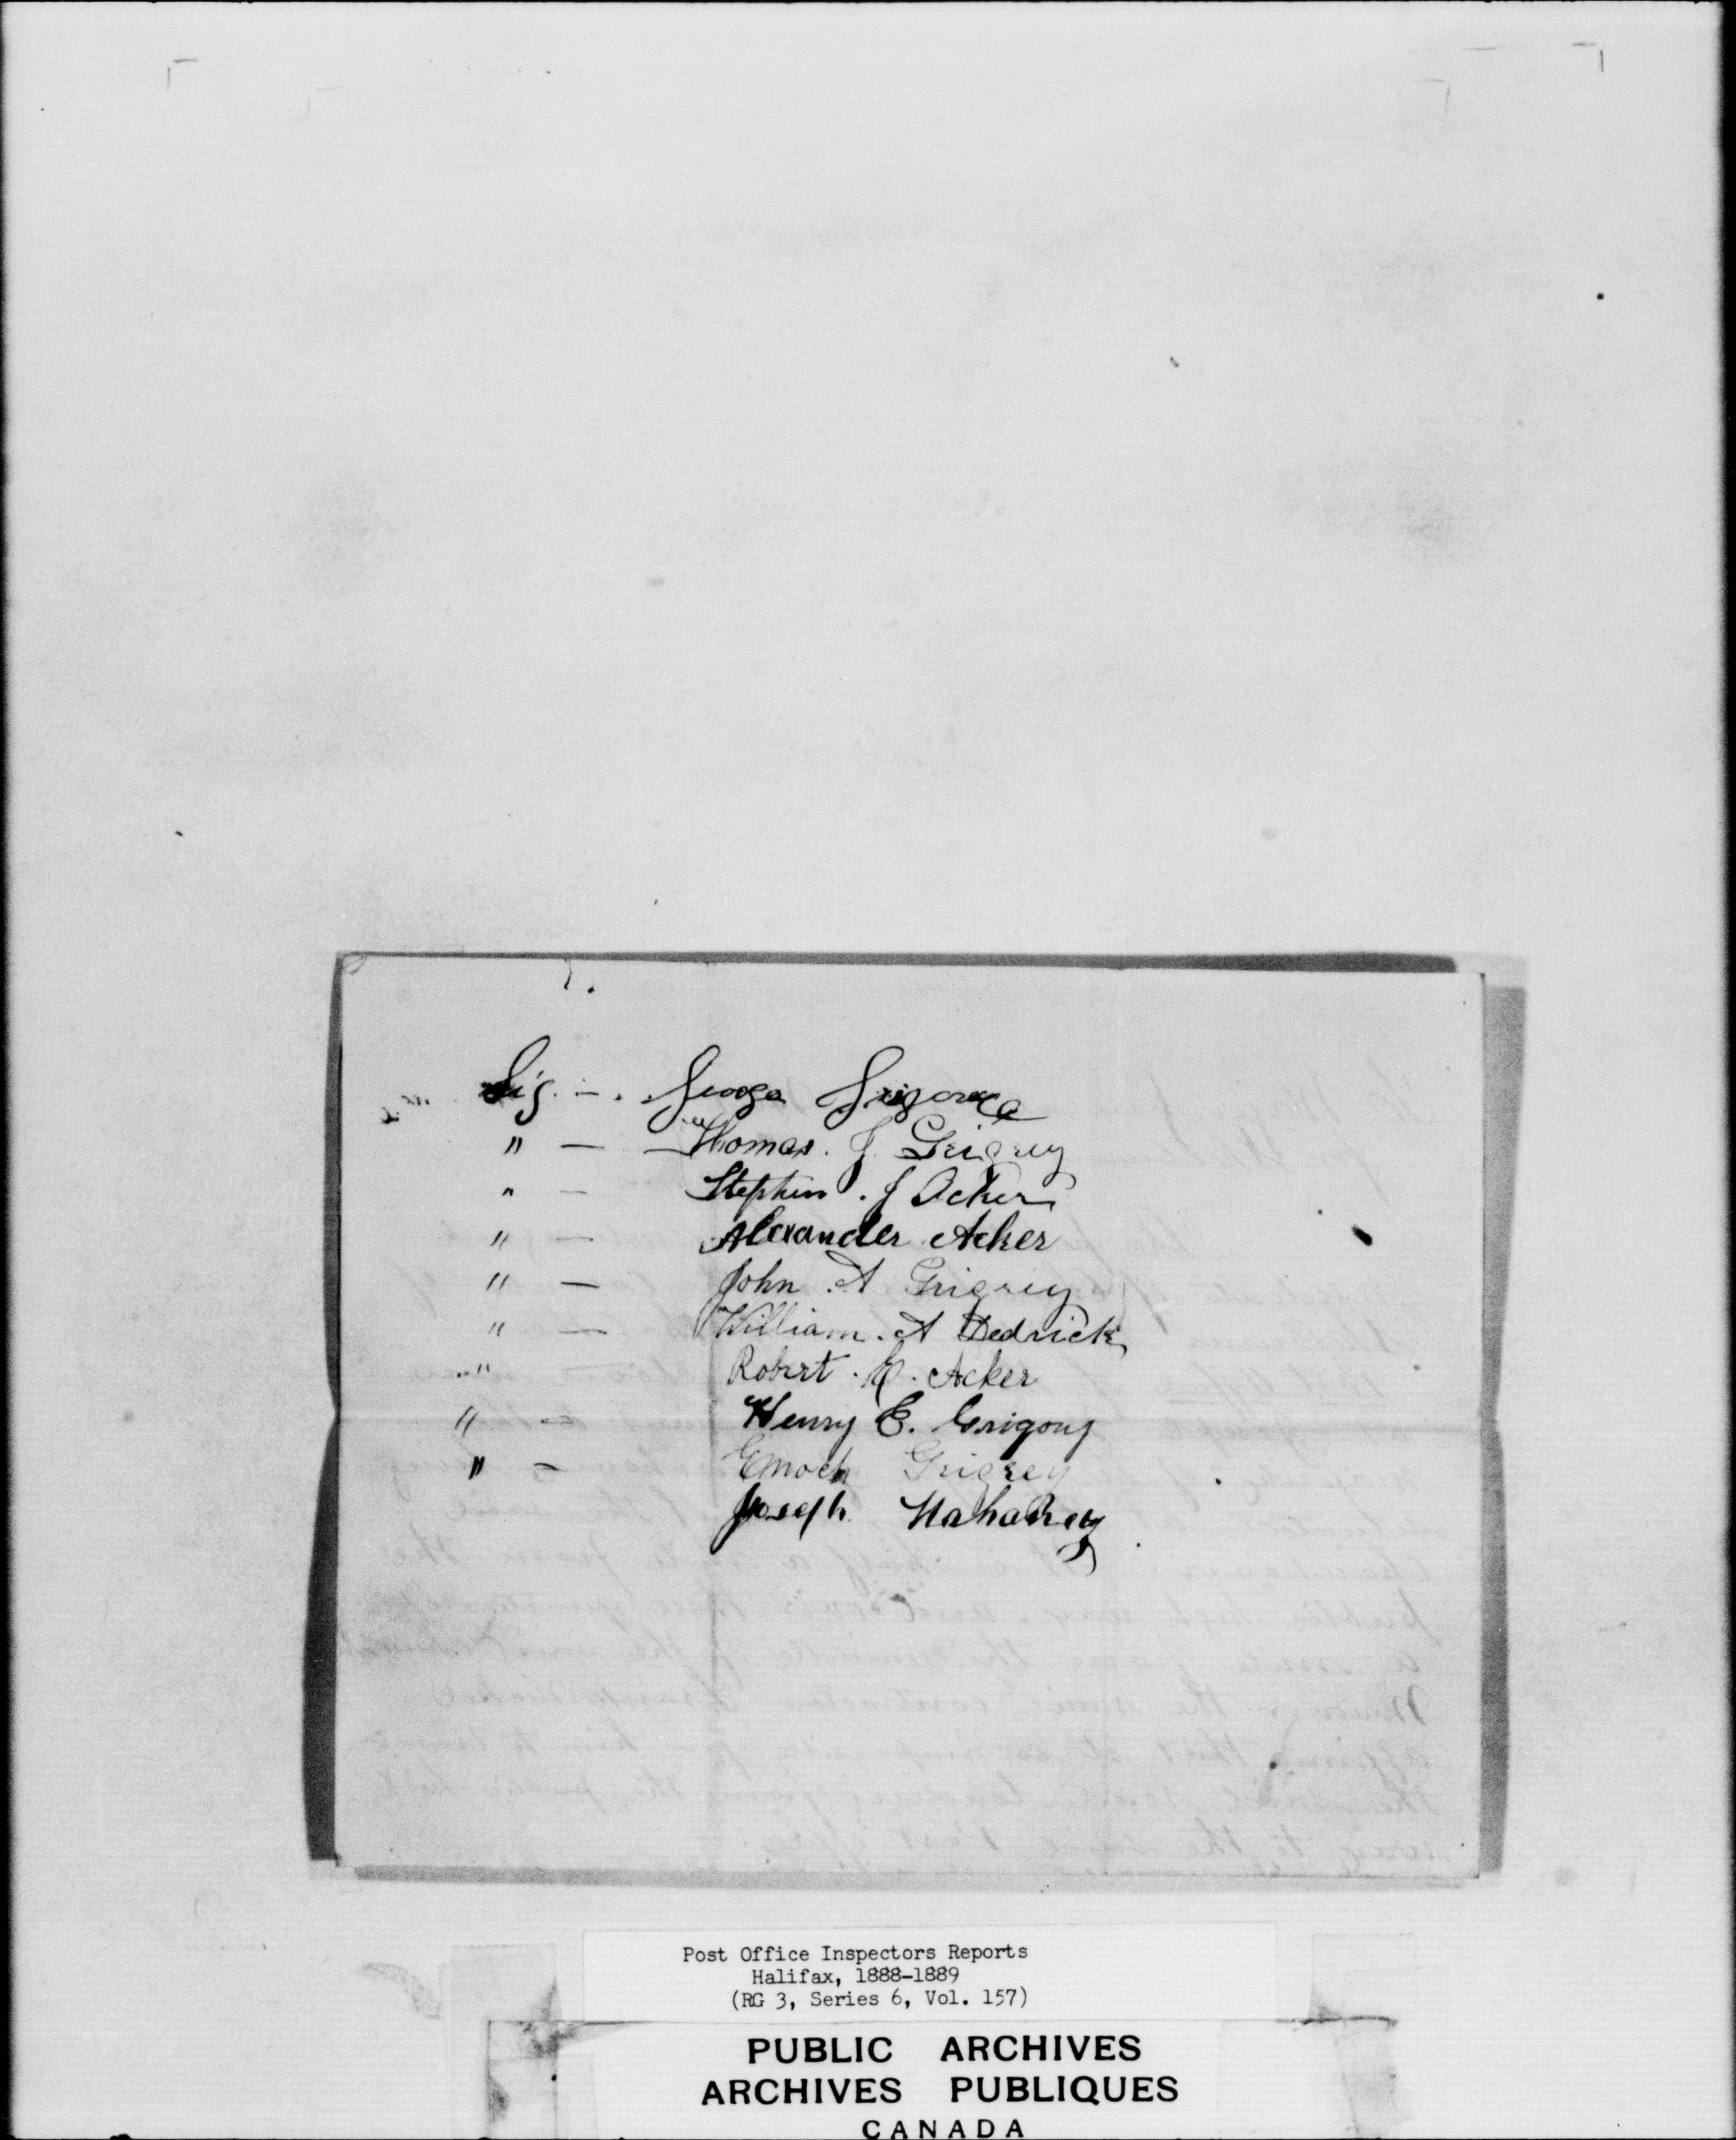 Sig. — George Grigoree
" — Thomas. J Grigrey
" — Stephen. J Acker
" — Alexander Acker
" — John. A Grigrey
" — William. A Dedrick
" Robert. E. Acker
" — Henry E. Grigory
" — Enoch Grigrey
Joseph Mahaney
Post Office Inspectors Reports
Halifax, 1888-1889
(RG 3, Series 6, Vol. 157)
PUBLIC ARCHIVES
ARCHIVES PUBLIQUES
CANADA